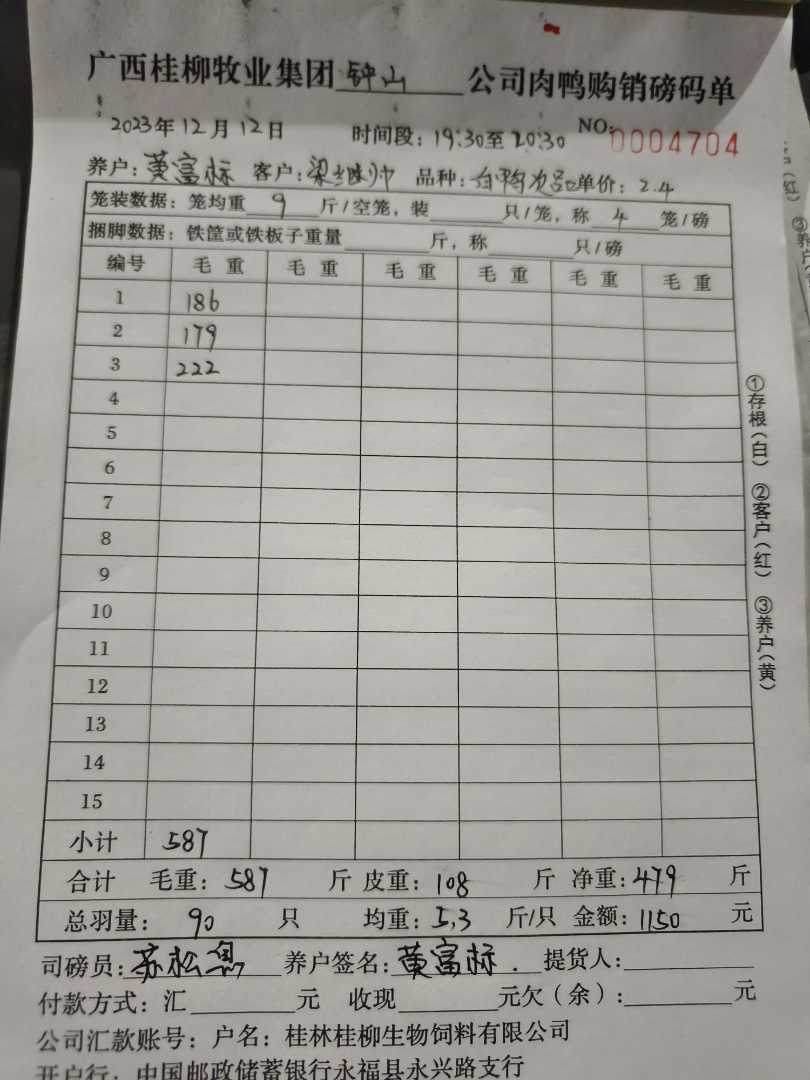 广西桂柳牧业集团钟山公司肉鸭购销磅码单
2023年12月12日 时间段：19:30至20:30 NO:0004704
养户：黄富标 客户：梁 帅 品种：白鸭次品 单价：2.4
笼装数据：笼均重 9 斤/空笼，装 只/笼，称 4 笼/磅
捆脚数据：铁筐或铁板子重量 斤，称 只/磅
编号 毛重 毛重 毛重 毛重 毛重 毛重
1 186
2 179
3 222
4
5
6
7
8
9
10
11
12
13
14
15
小计 587
合计 毛重：587 斤 皮重：108 斤 净重：479 斤
总羽量：90 只 均重：5.3 斤/只 金额：1150 元
司磅员：苏松 养户签名：黄富标. 提货人：
付款方式：汇 元 收现 元欠（余）： 元
公司汇款账号：户名：桂林桂柳生物饲料有限公司
开户行：中国邮政储蓄银行永福县永兴路支行
①存根（白） ②客户（红） ③养户（黄）